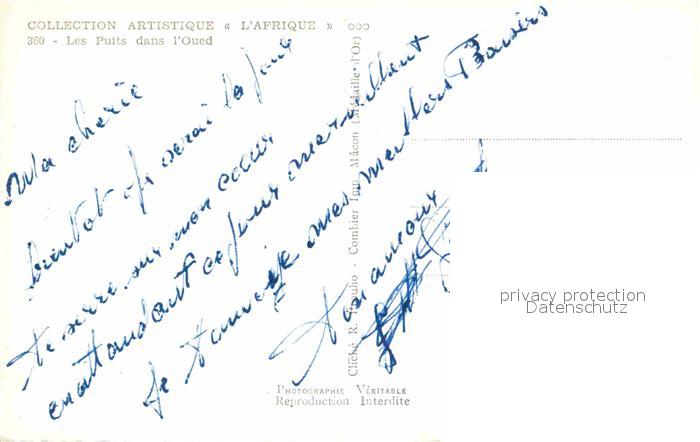 COLLECTION ARTISTIQUE « L'AFRIQUE »
360 - Les Puits dans l'Oued
Ma cherie
bientot je serai la pour
te serre sur mon coeur
enattendant ce jour merveilleux
Je t'envoie mes meilleurs Baisers
Ton amour
Cliché R. - Combier Imp. Mâcon (Médaille d'Or)
PHOTOGRAPHIE VÉRITABLE
Reproduction Interdite
privacy protection
Datenschutz